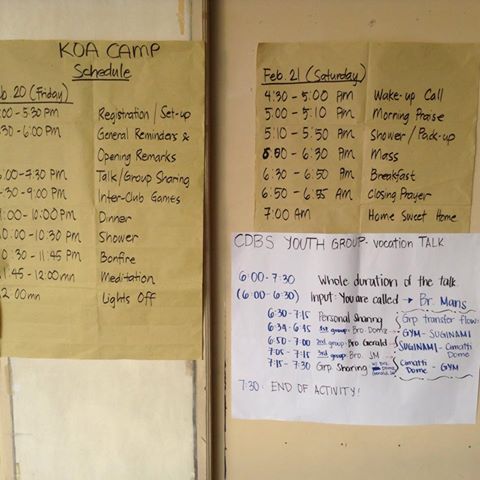 KOA CAMP
Schedule
b. 20 (Friday)
:00 - 5:30 PM Registration / Set-up
:30 - 6:00 PM General Reminders &
Opening Remarks
6:00 - 7:30 PM Talk/Group Sharing
:30 - 9:00 PM Inter-Club Games
9:00 - 10:00 PM Dinner
10:00 - 10:30 PM Shower
10:30 - 11:45 PM Bonfire
11:45 - 12:00mn Meditation
12:00mn Lights Off
Feb. 21 (Saturday)
4:30 - 5:00 PM Wake-up Call
5:00 - 5:10 PM Morning Praise
5:10 - 5:50 AM Shower / Pack-up
5:50 - 6:30 AM Mass
6:30 - 6:50 AM Breakfast
6:50 - 6:55 AM Closing Prayer
7:00 AM Home Sweet Home
CDBS YOUTH GROUP - vocation TALK
6:00 - 7:30 Whole duration of the talk.
(6:00 - 6:30) Input: You are called → Br. Mans
6:30 - 7:15 Personal Sharing Grp transfer flow:
6:34 - 6:45 1st group - Bro. Domz GYM - SUGINAMI
6:50 - 7:00 2nd group - Bro Gerald SUGINAMI - Camatti Dome
7:05 - 7:15 3rd group - Bro. JM
7:15 - 7:30 Grp Sharing Camatti Dome - GYM
7:30 : END OF ACTIVITY!